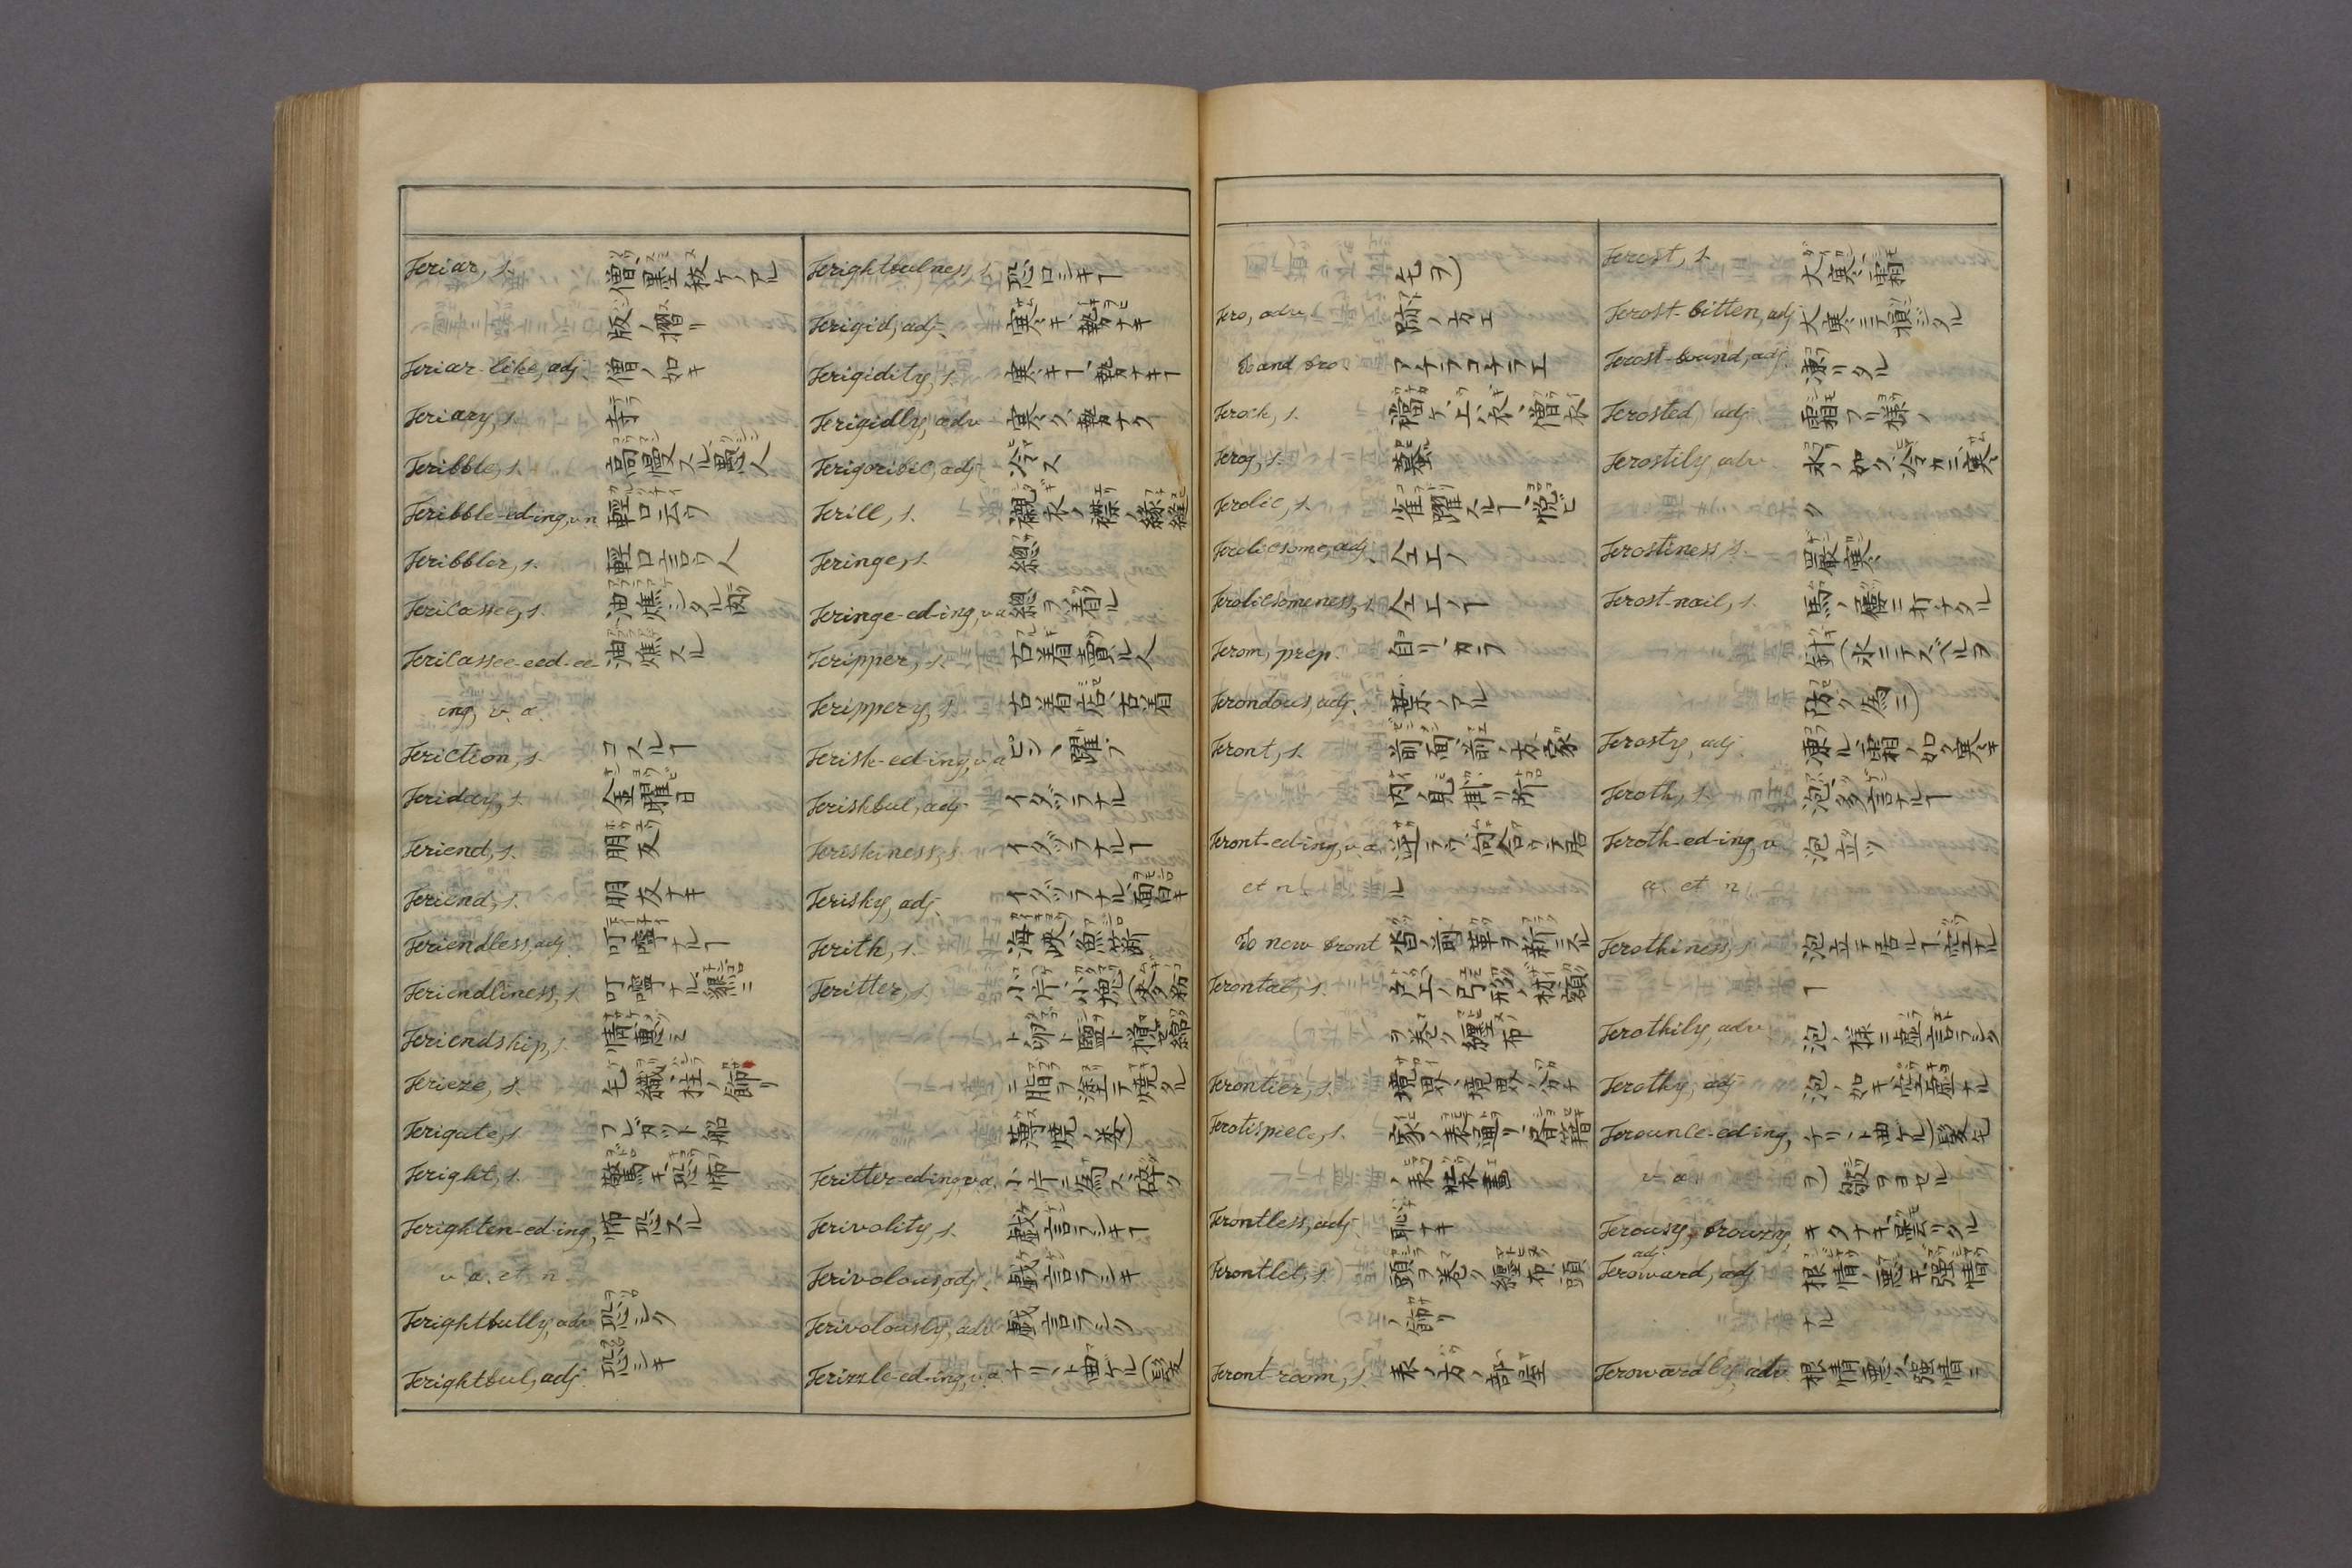 Friar, s. 僧、墨板ケノアル
版ノ摺リ
Friar-like, adj. 僧ノ如キ
Friary, s. 寺
Fribble, s. 高慢スル愚人
Fribble-ed-ing, v.n 輕口云フ
Fribbler, s. 輕口言フ人
Fricassee, s. 油燋シタル肉
Fricassee-eed-ee- 油燋スル
ing, v. a.
Friction, s. コスルヿ
Friday, s. 金曜日
Friend, s. 朋友
Friend, s. 朋友ナキ
Friendless, adj. 叮嚀ナルヿ
Friendliness, s. 叮嚀ナル、懇ニ
Friendship, s. 情
Frieze, s. 毛織、柱ノ飾リ
Frigate, s. フレガット船
Fright, s. 驚キ、恐怖
Frighten-ed-ing, 怖恐スル
v. a. et. n.
Frightfully, adv 恐シク
Frightful, adj. 恐シキ
Frightfulness, s. 恐ロシキヿ
Frigid, adj. 寒キ、勢ナキ
Frigidity, s. 寒キヿ、勢ナキヿ
Frigidly, adv 寒ク、勢ナク
Frigorific, adj. 冷ス
Frill, s. 襯衣ノ襟ノ縁縫
Fringe, s. 總
Fringe-ed-ing, v.a 總ヲ着ル
Fripper, s. 古着賣ル人
Frippery, s. 古着店、古着
Frisk-ed-ing, v.a ピン〻躍フ
Friskful, adj. イタヅラナル
Friskiness, s. イタヅラナルヿ
Frisky, adj. イタヅラナル、面白キ
Frith, s. 海峽、魚簗
Fritter, s. 小片、小塊(麥粉
ト卵ト鹽ト
ニ脂ヲ塗テ焼タル
薄焼ノ麥)
Fritter-ed-ing, v.a. 小片ニ為ス、碎ク
Frivolity, s. 戯言ラシキヿ
Frivolous, adj. 戯言ラシキ
Frivolously, adv 戯言ラシク
Frizzle-ed-ing, v.a チリ〻ト曲ケル(髪
毛ヲ)
Fro, adv. 跡ノ方エ
To and fro アチラコチラエ
Frock, s. 僧衣
Frog, s. 蟇
Frolic, s. 雀躍スルヿ、悦ビ
Frolicsome, adj. 仝上ノ
Frolicsomeness, s. 仝上ノヿ
From, prep. 自リ、カラ
Frondous, adj. 葉ノアル
Front, s. 前面、前ノ方、家
Front-ed-ing, v.a 逆ラウ、向合ウテ居
et n. ル
To new front 沓ノ前革ヲ新ニスル
Frontal, s. 戸上ノ弓形ノ材、額
ヲ巻ク纏布
Frontier, s. 境界、境界ノ分チ
Frotispiece, s. 家ノ表通リ、書籍
ノ表粧畫
Frontless, adj. 耻ナキ
Frontlet, s. 頭ヲ巻ク纏布、頭
ノ飾リ
Front-room, s. 表ノ方ノ部屋
Frost, s. 大寒、霜
Frost-bitten, adj 大寒ニテ損ジタル
Frost-bound, adj. 凍リタル
Frosted adj. 霜フリ様ノ
Frostily, adv. 氷ノ如ク、冷カニ、寒
ク
Frostiness, s. 嚴寒
Frost-nail, s. 馬ノ蹄ニ打ナタル
針(氷ニテスベルヲ
防ク為ニ)
Frosty, adj. 凍ル、霜ノ如ク寒キ
Froth, s. 泡、多言ナルヿ
Froth-ed-ing, v. 泡立ツ
a. et n.
Frothiness, s. 泡立テ居ルヿ、空ナル
ヿ
Frothily, adv. 泡ノ様ニ、虚言ラシク
Frothy, adj 泡ノ如キ、空虚ナル
Frounce-ed-ing, チリ〻ト曲ケル(髪毛
v. a. ヲ)皺ヲヨセル
Frousy, frouzy, キタナキ、曇リタル
adj.
Froward, adj 根情ノ悪キ、強情
ナル
Frowardly, adv. 根情悪ク、強情ニ